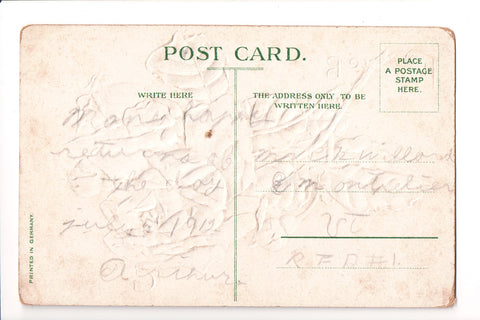 POST CARD.
PLACE
A POSTAGE
STAMP
HERE.
WRITE HERE
THE ADDRESS ONLY TO BE
WRITTEN HERE.
Many happy
returns of
the day
July 5 1912
Arthur.
Mr C M Willard
E Montpelier
Vt
R F D #1.
PRINTED IN GERMANY.